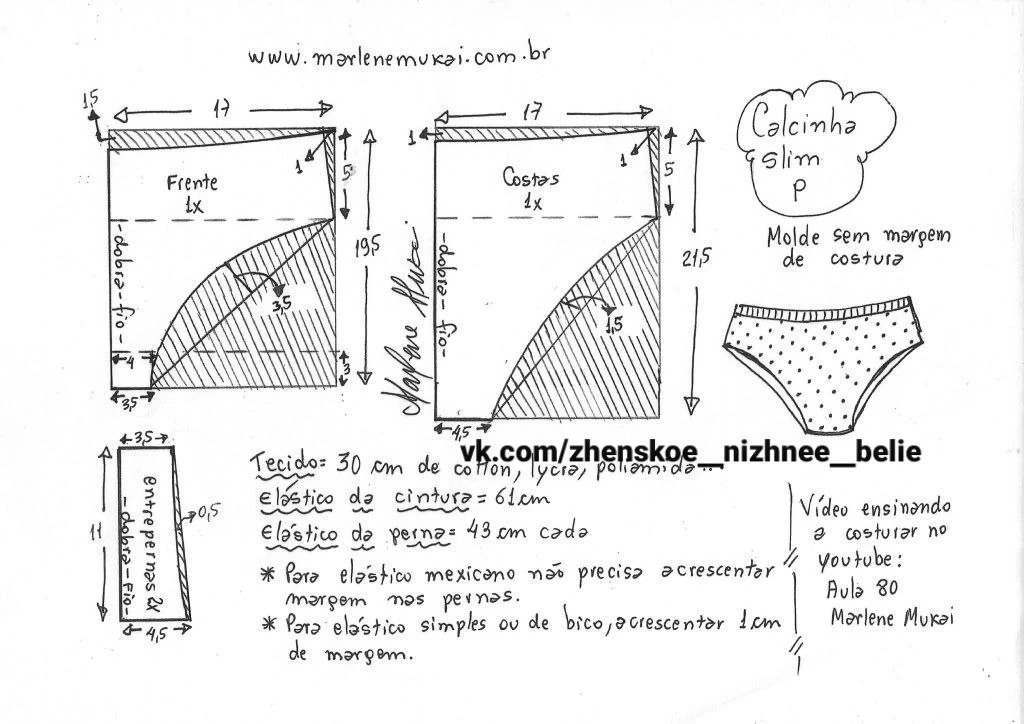 www.marlenemukai.com.br
1,5
17
1
5
Frente
1x
19,5
-dobra-fio-
3,5
4
3
3,5
17
1
1
5
Costas
1x
21,5
-dobra-fio-
1,5
4,5
Calcinha
slim
P
Molde sem margem
de costura
vk.com/zhenskoe_nizhnee_belie
3,5
11
entrepernas 2x
-dobra-fio-
0,5
4,5
Tecido= 30 cm de cotton, lycra, poliamida..
Elástico da cintura= 61cm
Elástico da perna= 43 cm cada
* Para elástico mexicano não precisa acrescentar
margem nas pernas.
* Para elástico simples ou de bico, acrescentar 1cm
de margem.
Vídeo ensinando
a costurar no
youtube:
Aula 80
Marlene Mukai